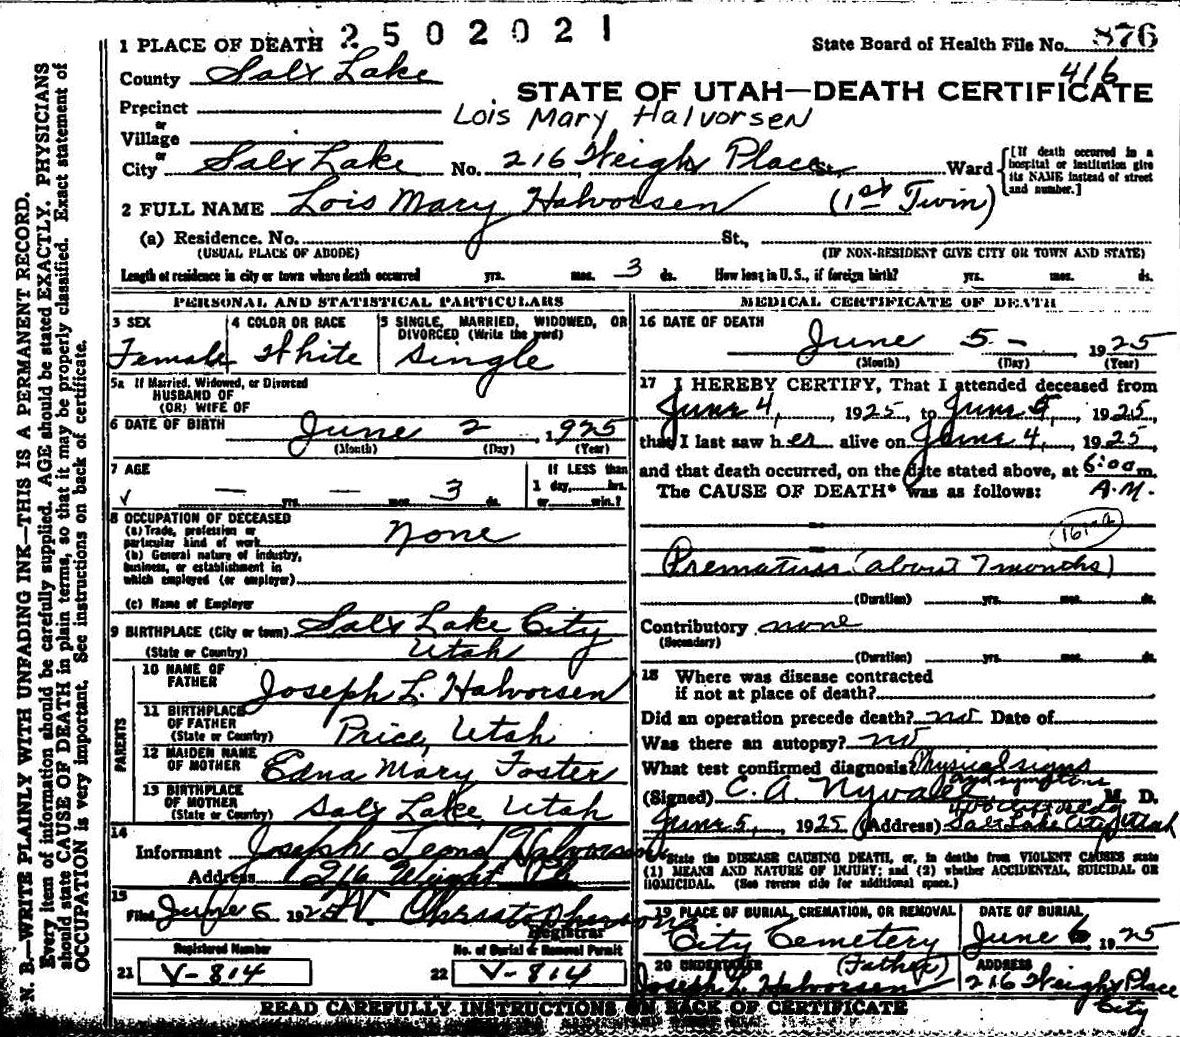 2502021
1 PLACE OF DEATH
State Board of Health File No. 876
416
County Salt Lake
STATE OF UTAH—DEATH CERTIFICATE
Precinct
or
Lois Mary Halvorsen
Village
or
City Salt Lake No. 216 Weight Place St. Ward
[If death occurred in a
hospital or institution give
its NAME instead of street
and number.]
2 FULL NAME Lois Mary Halvorsen (1st Twin)
(a) Residence. No. St.,
(USUAL PLACE OF ABODE) (IF NON-RESIDENT GIVE CITY OR TOWN AND STATE)
Length of residence in city or town where death occurred yrs. mos. 3 ds. How long in U. S., if foreign birth? yrs. mos. ds.
PERSONAL AND STATISTICAL PARTICULARS
3 SEX
Female
4 COLOR OR RACE
White
5 SINGLE, MARRIED, WIDOWED, OR
DIVORCED (Write the word)
Single
5a If Married, Widowed, or Divorced
HUSBAND OF
(OR) WIFE OF
6 DATE OF BIRTH June 2, 1925
(Month) (Day) (Year)
7 AGE
If LESS than
— yrs. — mos. 3 ds.
1 day, hrs.
or min.?
8 OCCUPATION OF DECEASED
(a) Trade, profession or
particular kind of work None
(b) General nature of industry,
business, or establishment in
which employed (or employer)
(c) Name of Employer
9 BIRTHPLACE (City or town) Salt Lake City
(State or Country) Utah
PARENTS
10 NAME OF
FATHER Joseph L. Halvorsen
11 BIRTHPLACE
OF FATHER
(State or Country) Price, Utah
12 MAIDEN NAME
OF MOTHER Edna Mary Foster
13 BIRTHPLACE
OF MOTHER
(State or Country) Salt Lake Utah
14
Informant Joseph Halvorsen
Address 216
15
Filed June 6 1925
Registrar
Registered Number
21 V-814
No. of Burial or Removal Permit
22 V-814
MEDICAL CERTIFICATE OF DEATH
16 DATE OF DEATH
June 5 - 1925
(Month) (Day) (Year)
17 I HEREBY CERTIFY, That I attended deceased from
June 4, 1925, to June 5, 1925,
that I last saw her alive on June 4, 1925,
and that death occurred, on the date stated above, at 6:00 m.
The CAUSE OF DEATH* was as follows: A.M.
(about 7 months)
(Duration) yrs. mos. ds.
Contributory none
(Secondary)
(Duration) yrs. mos. ds.
18 Where was disease contracted
if not at place of death?
Did an operation precede death? no Date of
Was there an autopsy? no
What test confirmed diagnosis? Physical signs
and symptoms
(Signed) C. A. M. D.
June 5, 1925 (Address) Salt Lake City Utah
*State the DISEASE CAUSING DEATH, or, in deaths from VIOLENT CAUSES state
(1) MEANS AND NATURE OF INJURY; and (2) whether ACCIDENTAL, SUICIDAL OR
HOMICIDAL. (See reverse side for additional space.)
19 PLACE OF BURIAL, CREMATION, OR REMOVAL
City Cemetery
DATE OF BURIAL
June 6 1925
20 UNDERTAKER (Father)
Joseph L. Halvorsen
ADDRESS
216 Weight Place
City
READ CAREFULLY INSTRUCTIONS ON BACK OF CERTIFICATE
N. B.—WRITE PLAINLY WITH UNFADING INK—THIS IS A PERMANENT RECORD.
Every item of information should be carefully supplied. AGE should be stated EXACTLY. PHYSICIANS
should state CAUSE OF DEATH in plain terms, so that it may be properly classified. Exact statement of
OCCUPATION is very important. See instructions on back of certificate.